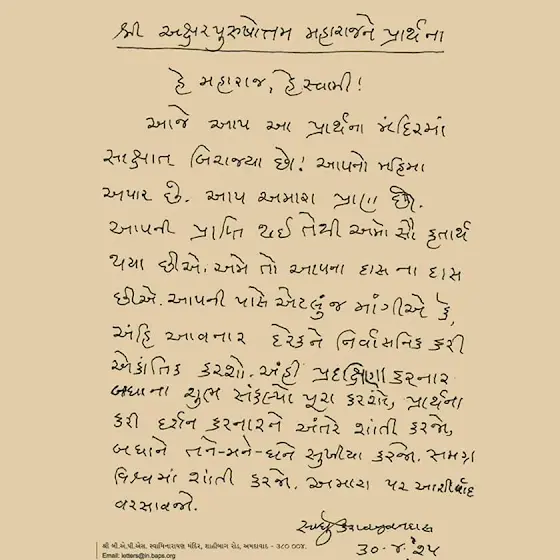 શ્રી અક્ષરપુરુષોત્તમ મહારાજને પ્રાર્થના
હે મહારાજ, હે સ્વામી!
આજે આપ આ પ્રાર્થના મંદિરમાં
સાક્ષાત બિરાજ્યા છો! આપનો મહિમા
અપાર છે. આપ અમારા પ્રાણ છો.
આપની પ્રાપ્તિ થઈ તેથી અમો સૌ કૃતાર્થ
થયા છીએ. અમે તો આપના દાસ ના દાસ
છીએ. આપની પાસે એટલું જ માંગીએ કે,
અંહિ આવનાર દરેકને નિર્વાસનિક કરી
એકાંતિક કરશો. અંહી પ્રદક્ષિણા કરનાર
બધાના શુભ સંકલ્પો પૂરા કરશો, પ્રાર્થના
કરી દર્શન કરનારને અંતરે શાંતી કરજો,
બધાને તને-મને-ધને સુખીયા કરજો. સમગ્ર
વિશ્વમાં શાંતી કરજો. અમારા પર આશીર્વાદ
વરસાવજો.
સાધુ કેશવજીવનદાસ
શ્રી બી.એ.પી.એસ. સ્વામિનારાયણ મંદિર, શાહીબાગ રોડ, અમદાવાદ - ૩૮૦ ૦૦૪.
૩૦.૪.'૨૫
Email: letters@in.baps.org